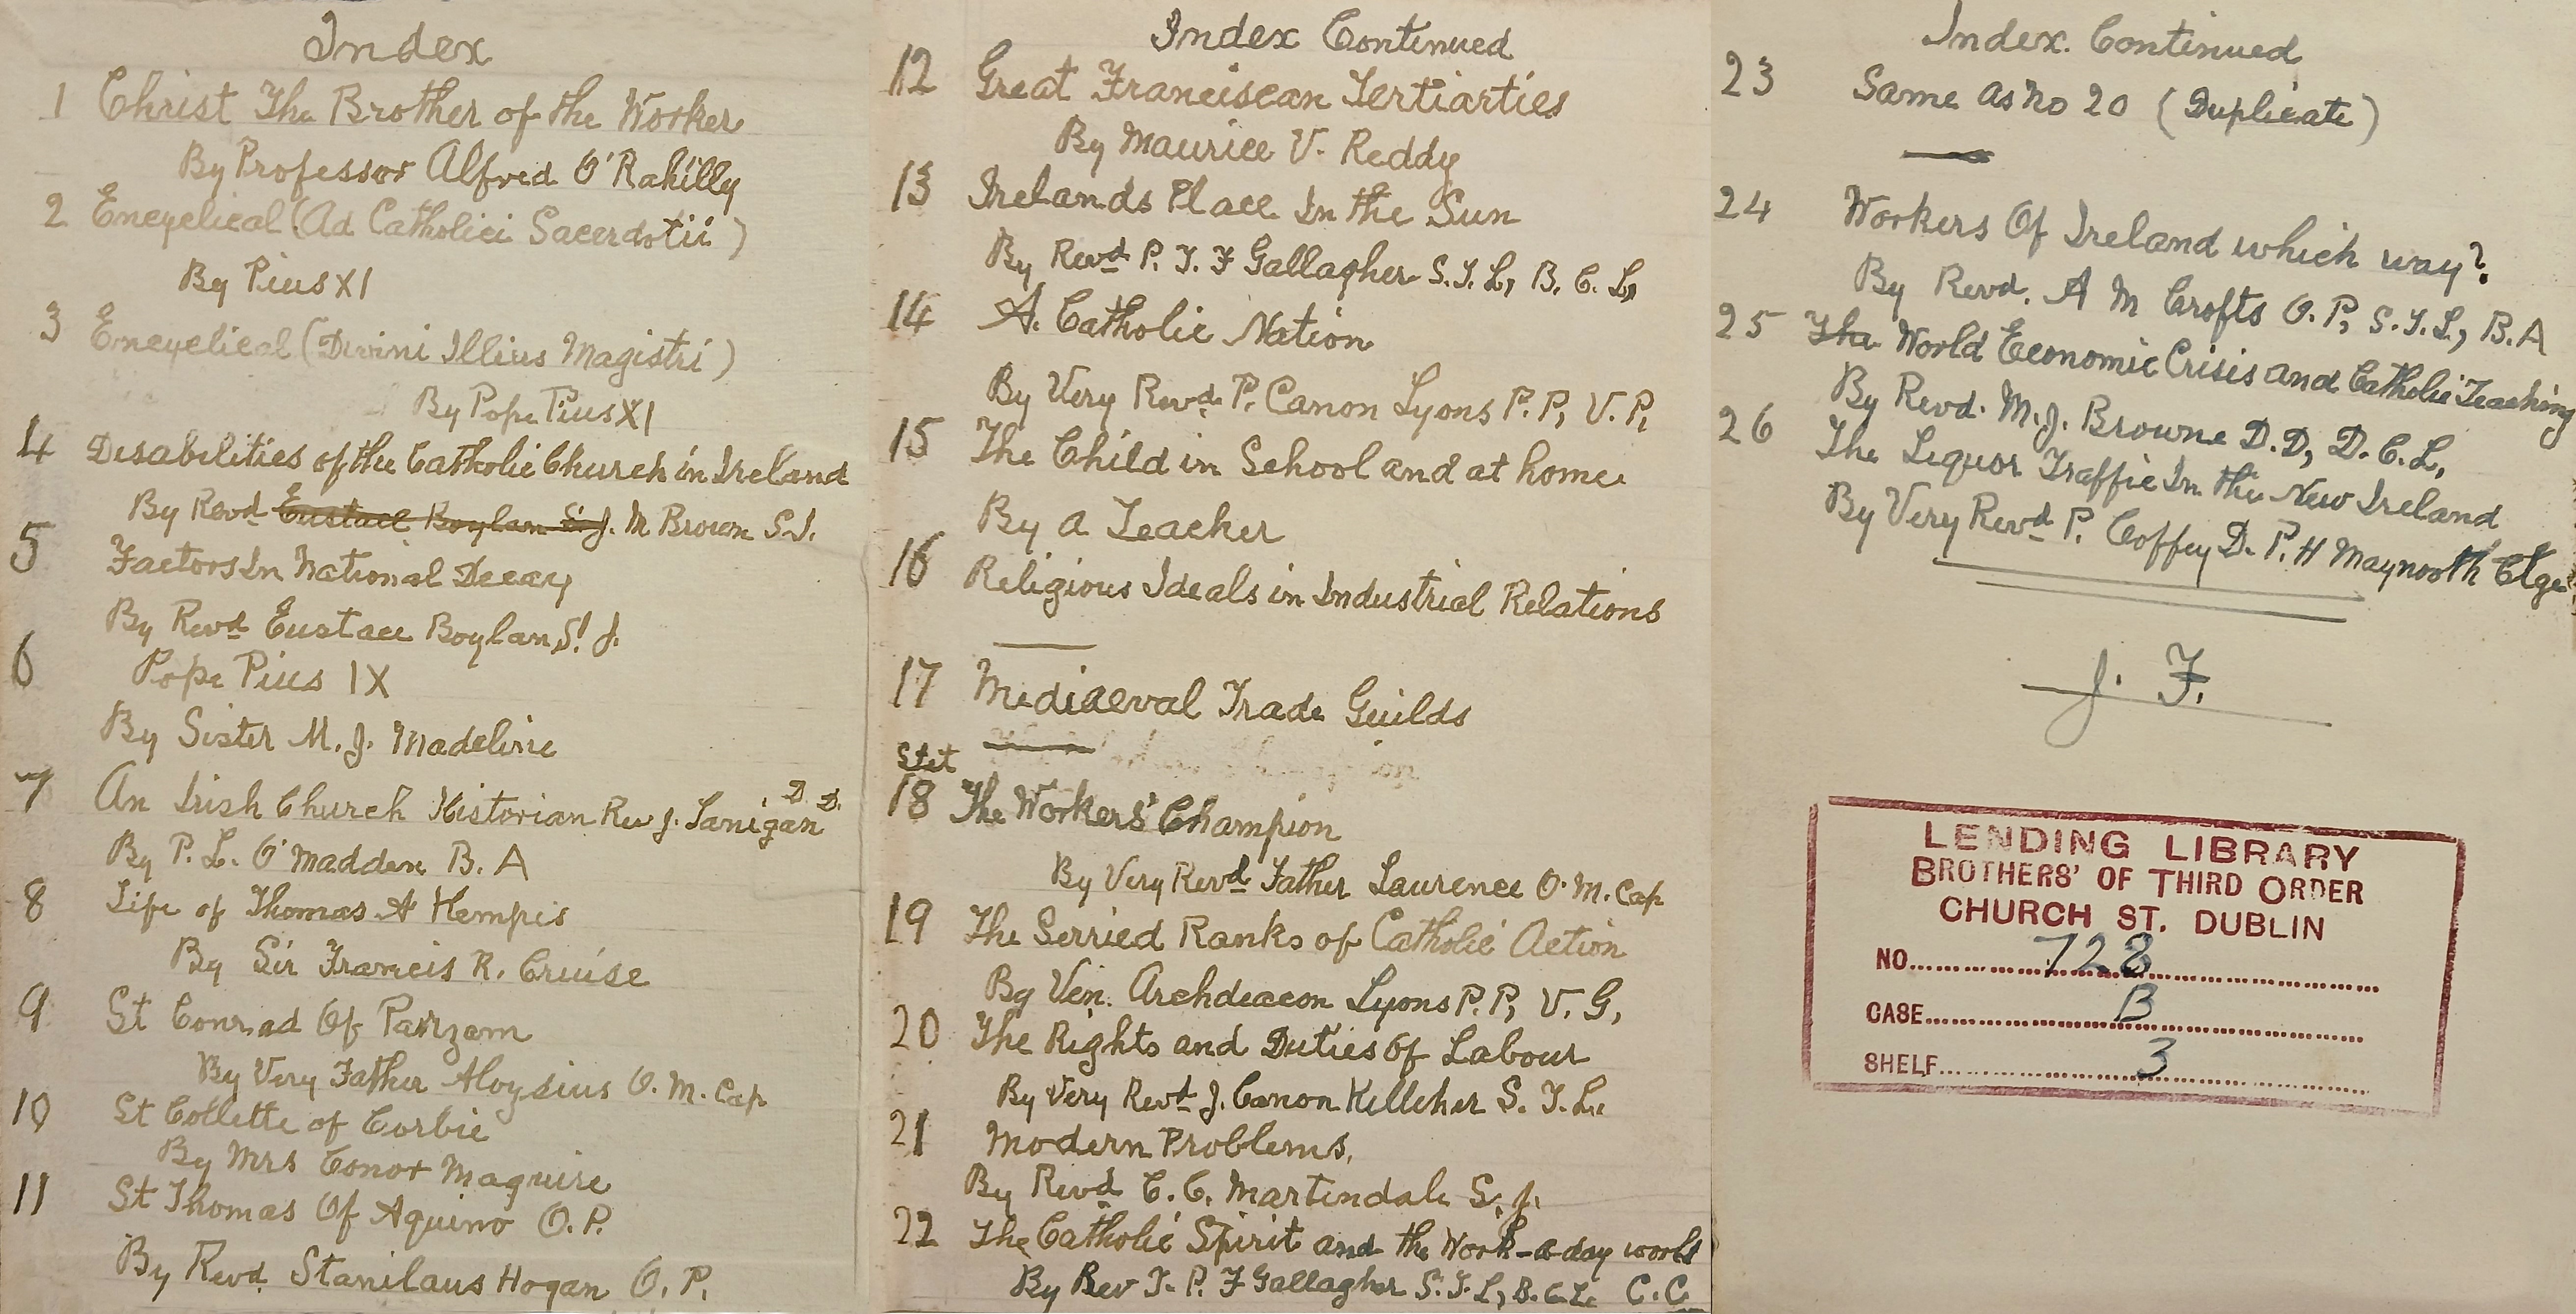 Index
1 Christ The Brother of the Worker
By Professor Alfred O'Rahilly
2 Encyclical (Ad Catholici Sacerdotii)
By Pius XI
3 Encyclical (Divini Illius Magistri)
By Pope Pius XI
4 Disabilities of the Catholic Church in Ireland
By Revd Eustace Boylan S.J. M Brown S.J.
5 Factors In National Decay
By Revd Eustace Boylan S.J.
6 Pope Pius IX
By Sister M. J. Madeline
7 An Irish Church Historian Rev J. Lanigan D.D.
By P. L. O'Madden B.A
8 Life of Thomas A Kempis
By Sir Francis R. Cruise
9 St Conrad Of Parzam
By Very Father Aloysius O.M.Cap
10 St Collette of Corbie
By Mrs Conor Maguire
11 St Thomas Of Aquino O.P.
By Revd. Stanilaus Hogan O.P.
Index Continued
12 Great Franciscan Tertiarties
By Maurice V. Reddy
13 Irelands Place In the Sun
By Revd P. T. F Gallagher S.T.L, B.C.L,
14 A. Catholic Nation
By Very Revd P. Canon Lyons P.P, V.P,
15 The Child in School and at home
By a Teacher
16 Religious Ideals in Industrial Relations
17 Mediaeval Trade Guilds
Stet
18 The Workers' Champion
By Very Revd Father Laurence O.M.Cap
19 The Serried Ranks of Catholic Action
By Ven. Archdeacon Lyons P.P, V.G,
20 The Rights and Duties Of Labour
By Very Revd J. Canon Kelleher S.T.L.
21 Modern Problems,
By Revd C.C. Martindale S.J.
22 The Catholic Spirit and the Work-a-day world
By Rev T. P. F Gallagher S.T.L, B.C.L. C.C
Index. Continued
23 Same as No 20 (Duplicate)
24 Workers Of Ireland which way?
By Revd. A M Crofts O.P, S.T.L, B.A
25 The World Economic Crisis and Catholic Teaching
By Revd. M.J. Browne D.D, D.C.L,
26 The Liquor Traffic In the New Ireland
By Very Revd P. Coffey D.P.H Maynooth Clge
J. F.
LENDING LIBRARY
BROTHERS' OF THIRD ORDER
CHURCH ST. DUBLIN
NO. 728
CASE B
SHELF 3